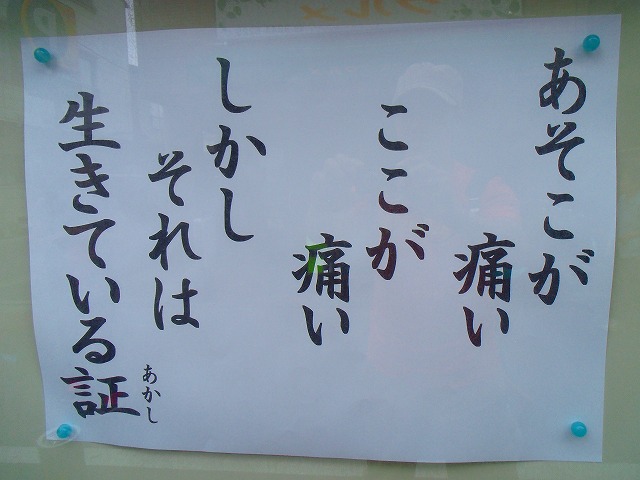 あそこが
痛い
ここが
痛い
しかし
それは
生きている証
あかし